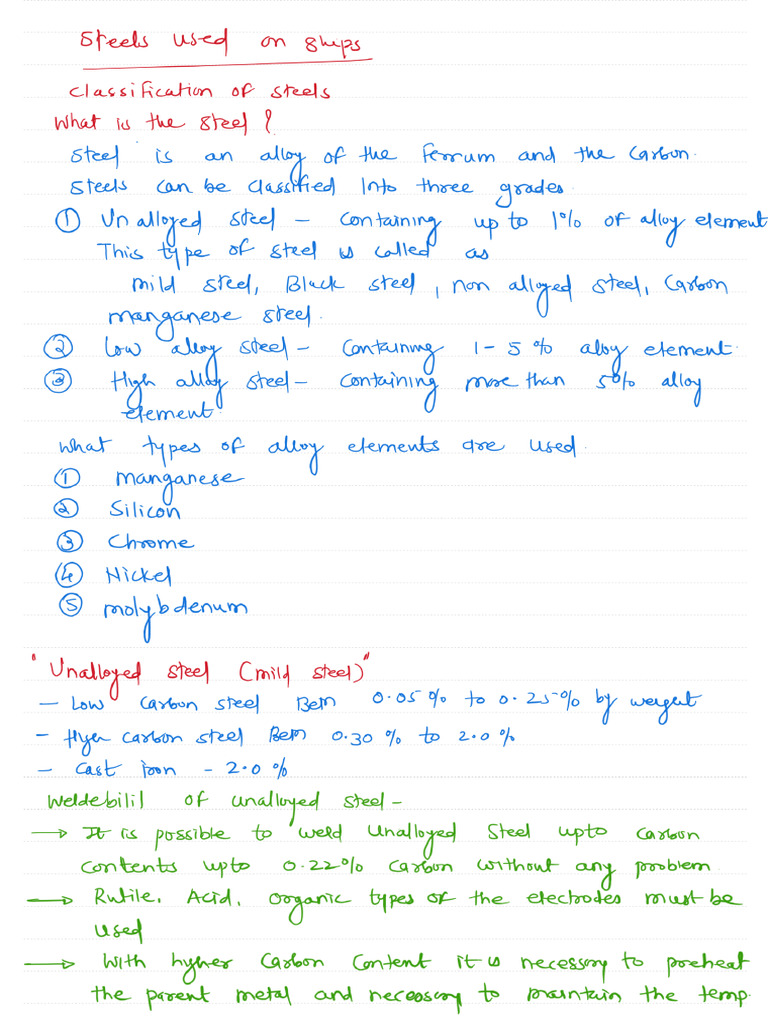 Steels used on Ships
Classification of steels
What is the steel ?
Steel is an alloy of the Ferrum and the Carbon.
Steels can be classified Into three grades.
① Unalloyed steel – Containing up to 1% of alloy element
This type of steel is called as
mild steel, Black steel, non alloyed steel, Carbon
manganese steel.
② Low alloy steel – Containing 1 – 5 % alloy element.
③ High alloy steel – Containing more than 5% alloy
element.
What types of alloy elements are used.
① manganese
② Silicon
③ Chrome
④ Nickel
⑤ molybdenum
"Unalloyed steel (mild steel)"
– Low carbon steel Betn 0.05% to 0.25% by weight
– Higher carbon steel Betn 0.30 % to 2.0 %
– Cast iron – 2.0 %
Weldebilil of unalloyed steel –
→ It is possible to weld Unalloyed Steel upto carbon
contents upto 0.22% carbon without any problem.
→ Rutile, Acid, organic types of the electrodes must be
used
→ With higher Carbon Content it is necessary to preheat
the parent metal and necessary to maintain the temp.